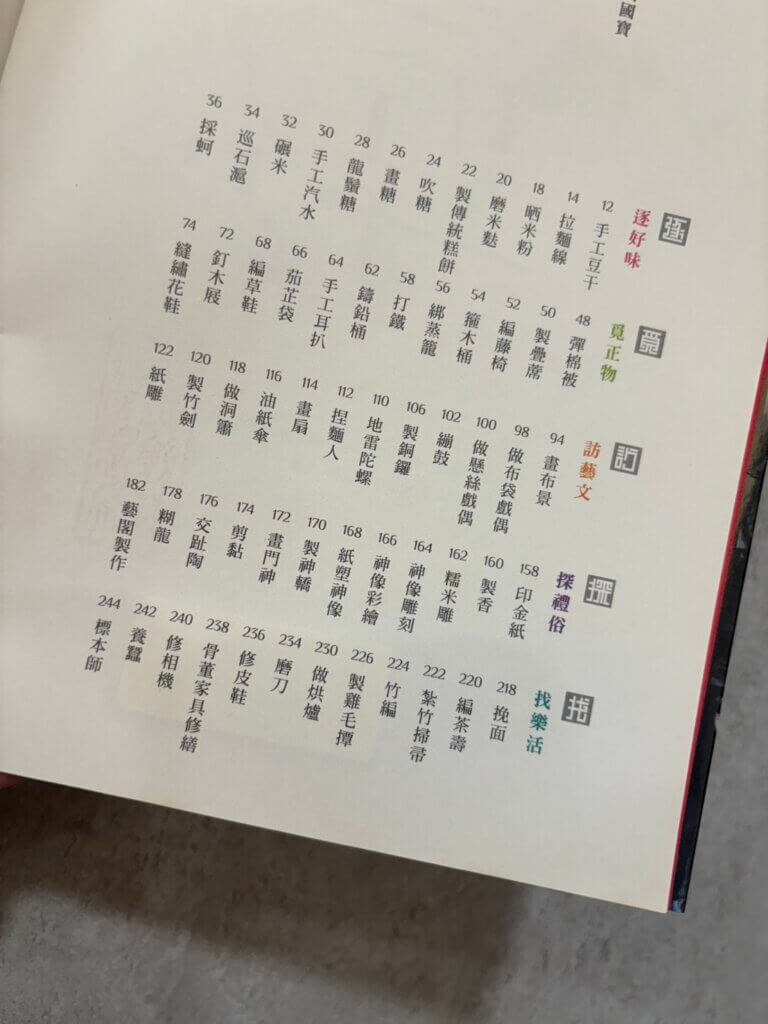 國寶
逐
逐好味
12 手工豆干
14 拉麵線
18 晒米粉
20 磨米麩
22 製傳統糕餅
24 吹糖
26 畫糖
28 龍鬚糖
30 手工汽水
32 碾米
34 巡石滬
36 採蚵
覓
覓正物
48 彈棉被
50 製疊蓆
52 編藤椅
54 箍木桶
56 綁蒸籠
58 打鐵
62 鑄鉛桶
64 手工耳扒
66 茄芷袋
68 編草鞋
72 釘木屐
74 縫繡花鞋
訪
訪藝文
94 畫布景
98 做布袋戲偶
100 做懸絲戲偶
102 繃鼓
106 製銅鑼
110 地雷陀螺
112 捏麵人
114 畫扇
116 油紙傘
118 做洞簫
120 製竹劍
122 紙雕
探
探禮俗
158 印金紙
160 製香
162 糯米雕
164 神像雕刻
166 神像彩繪
168 紙塑神像
170 製神轎
172 畫門神
174 剪黏
176 交趾陶
178 糊龍
182 藝閣製作
找
找樂活
218 挽面
220 編茶壽
222 紮竹掃帚
224 竹編
226 製雞毛撢
230 做烘爐
234 磨刀
236 修皮鞋
238 骨董家具修繕
240 修相機
242 養蠶
244 標本師